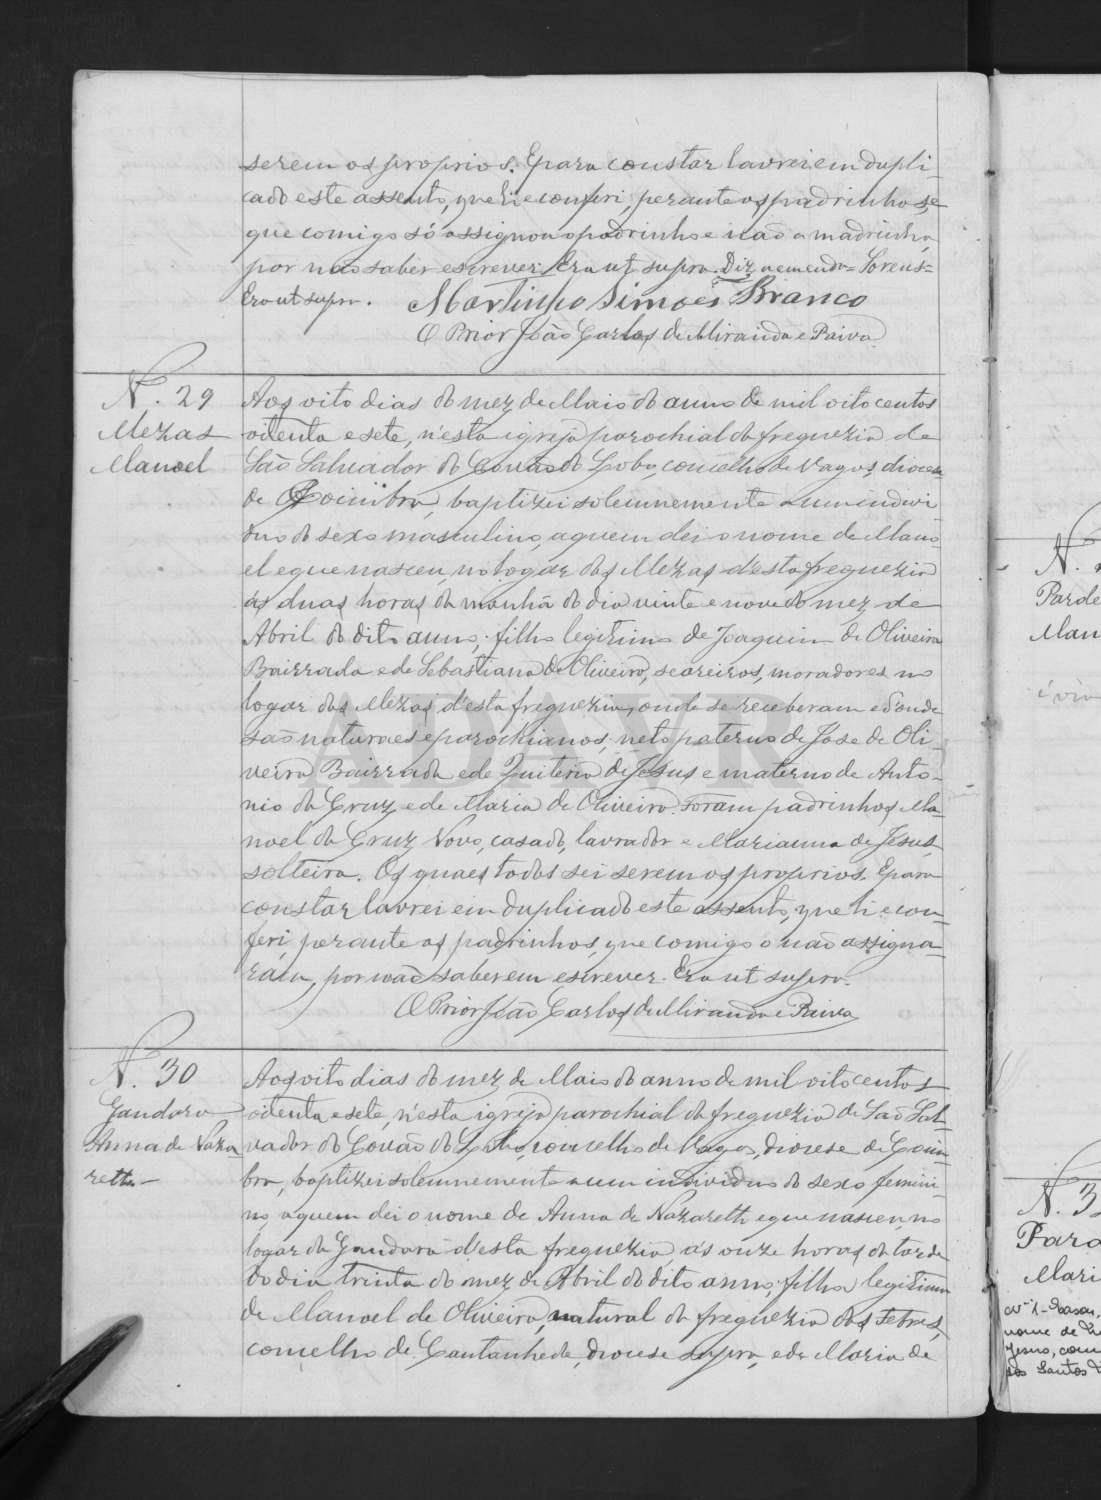 serem os proprios. E para constar lavrei em dupli-
cado este assento, que li e conferi, perante os padrinhos, e
que comigo só assignou o padrinho e não a madrinha,
por não saber escrever. Era ut supra. Diz a emenda =
Era ut supra. Martinho Simoes Branco
O Prior João Carlos de Miranda e Paiva
N. 29
Mezas
Manoel
Aos oito dias do mez de Maio do anno de mil oito centos
oitenta e sete, n'esta igreja parochial da freguezia de
São Salvador do Covão do Lobo, concelho de Vagos, diocese
de Coimbra, baptizei solemnemente a um indivi
duo do sexo masculino, a quem dei o nome de Mano-
el e que nasceu, no logar das Mezas d'esta freguezia
ás duas horas da manhã do dia vinte e nove do mez de
Abril do dito anno; filho legitimo de Joaquim de Oliveira
Bairrada e de Sebastiana de Oliveira, seareiros, moradores no
logar das Mezas d'esta freguezia, onde se receberam e d'onde
são naturaes e parochianos; neto paterno de Jose de Oli-
veira Bairrada e de Quiteria de Jesus e materno de Anto-
nio da Cruz e de Maria de Oliveira. Foram padrinhos Ma-
noel da Cruz Novo, casado, lavrador e Marianna de Jesus,
solteira. Os quaes todos sei serem os proprios. E para
constar lavrei em duplicado este assento, que li e con-
feri, perante os padrinhos, que comigo o não assigna-
ram, por não saberem escrever. Era ut supra.
O Prior João Carlos de Miranda e Paiva
N. 30
Gandara
Anna de Naza-
reth
Aos oito dias do mez de Maio do anno de mil oito centos
oitenta e sete, n'esta igreja parochial da freguezia de São Sal-
vador do Covão do Lobo, concelho de Vagos, diocese de Coim-
bra, baptizei solemnemente a um individuo do sexo femini-
no, a quem dei o nome de Anna de Nazareth e que nasceu, no
logar da Gandara d'esta freguezia ás onze horas da tarde
do dia trinta do mez de Abril do dito anno; filha legitima
de Manoel de Oliveira, natural da freguezia dos Febres,
concelho de Cantanhede, diocese supra, e de Maria de
ADAVR
N.
Parde
Man
N. 3
Para
Mari
nome de
Jesus, com
dos Santos